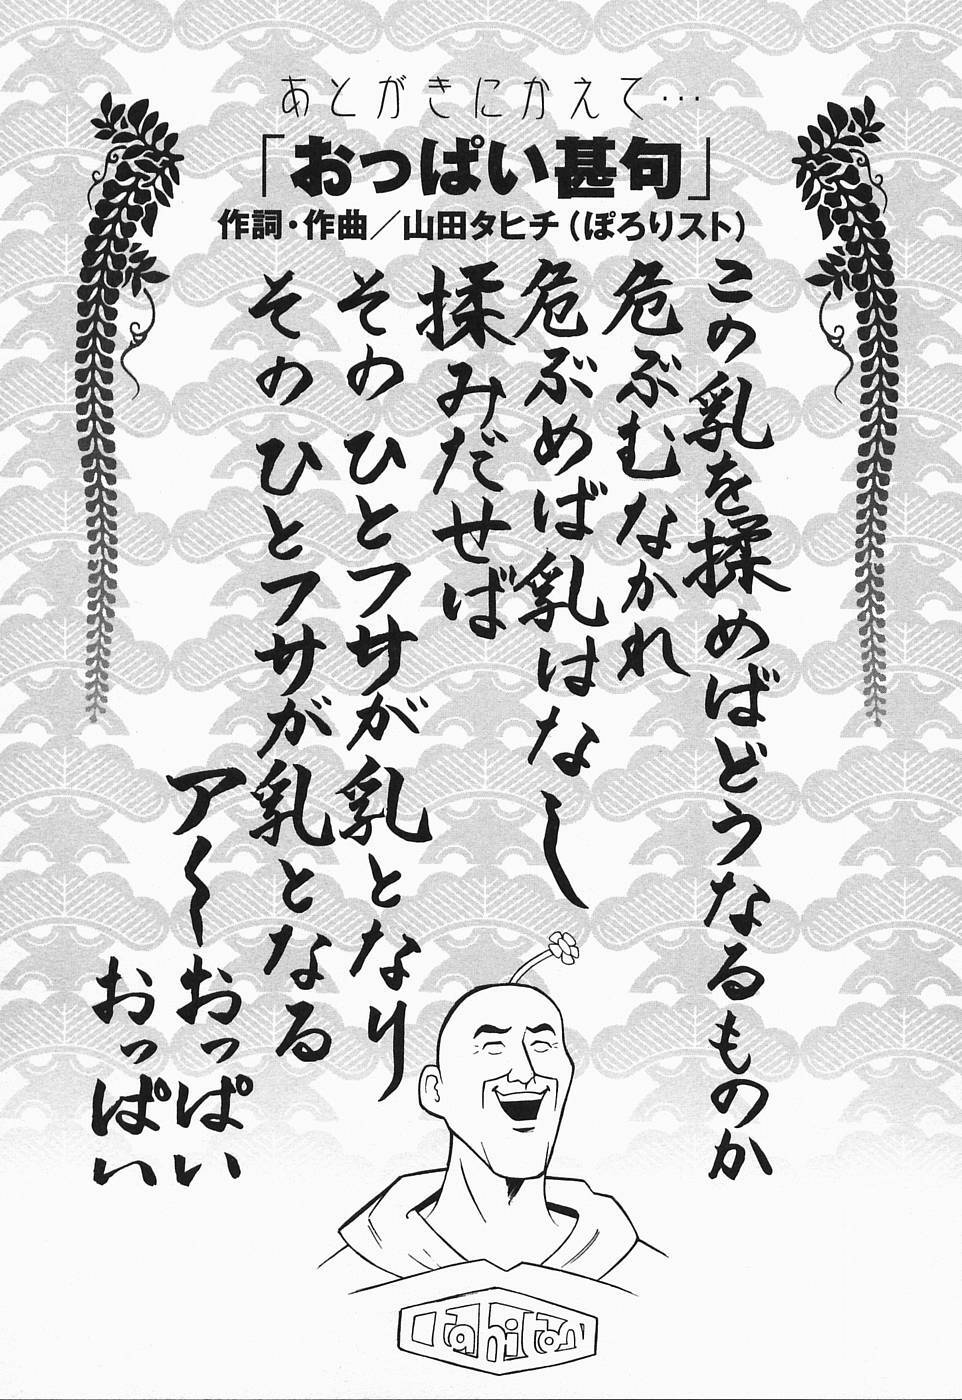 あとがきにかえて…
「おっぱい甚句」
作詞・作曲／山田タヒチ(ぽろりスト)
この乳を揉めばどうなるものか
危ぶむなかれ
危ぶめば乳はなし
揉みだせば
そのひとフサが乳となり
そのひとフサが乳となる
ア〜おっぱいおっぱい
tahiton